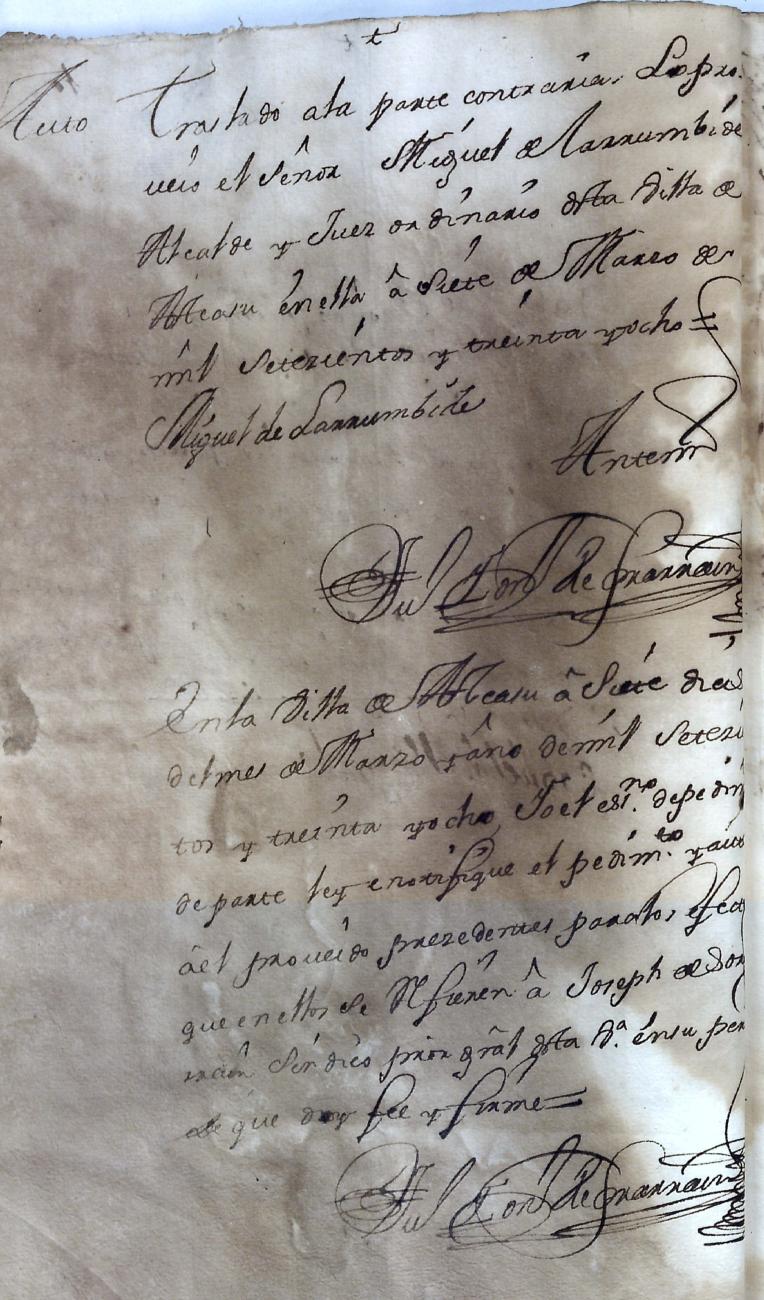 t
Auto Traslado ala parte contraria, Lo pro
ueió el Señor Miguel de Larrumbide
Alcalde y Juez ordinario desta Villa de
Alcasu en ella â Siete de Marzo de
mil Setezientos y treinta y ocho =
Miguel de Larrumbide
Antemi
de
En la Villa de Alcasu â Siete dias
del mes de Marzo y año de mil Setezi
tos y treinta y ocho, Yo el essno. de pedim
de parte ley e notifique el pedimto y auto
â el proueido prezedentes para los efect
que en ellos se Refieren â Joseph de
Sindico prôr grâl desta Va. en su per
de que doy fee y firme =
de